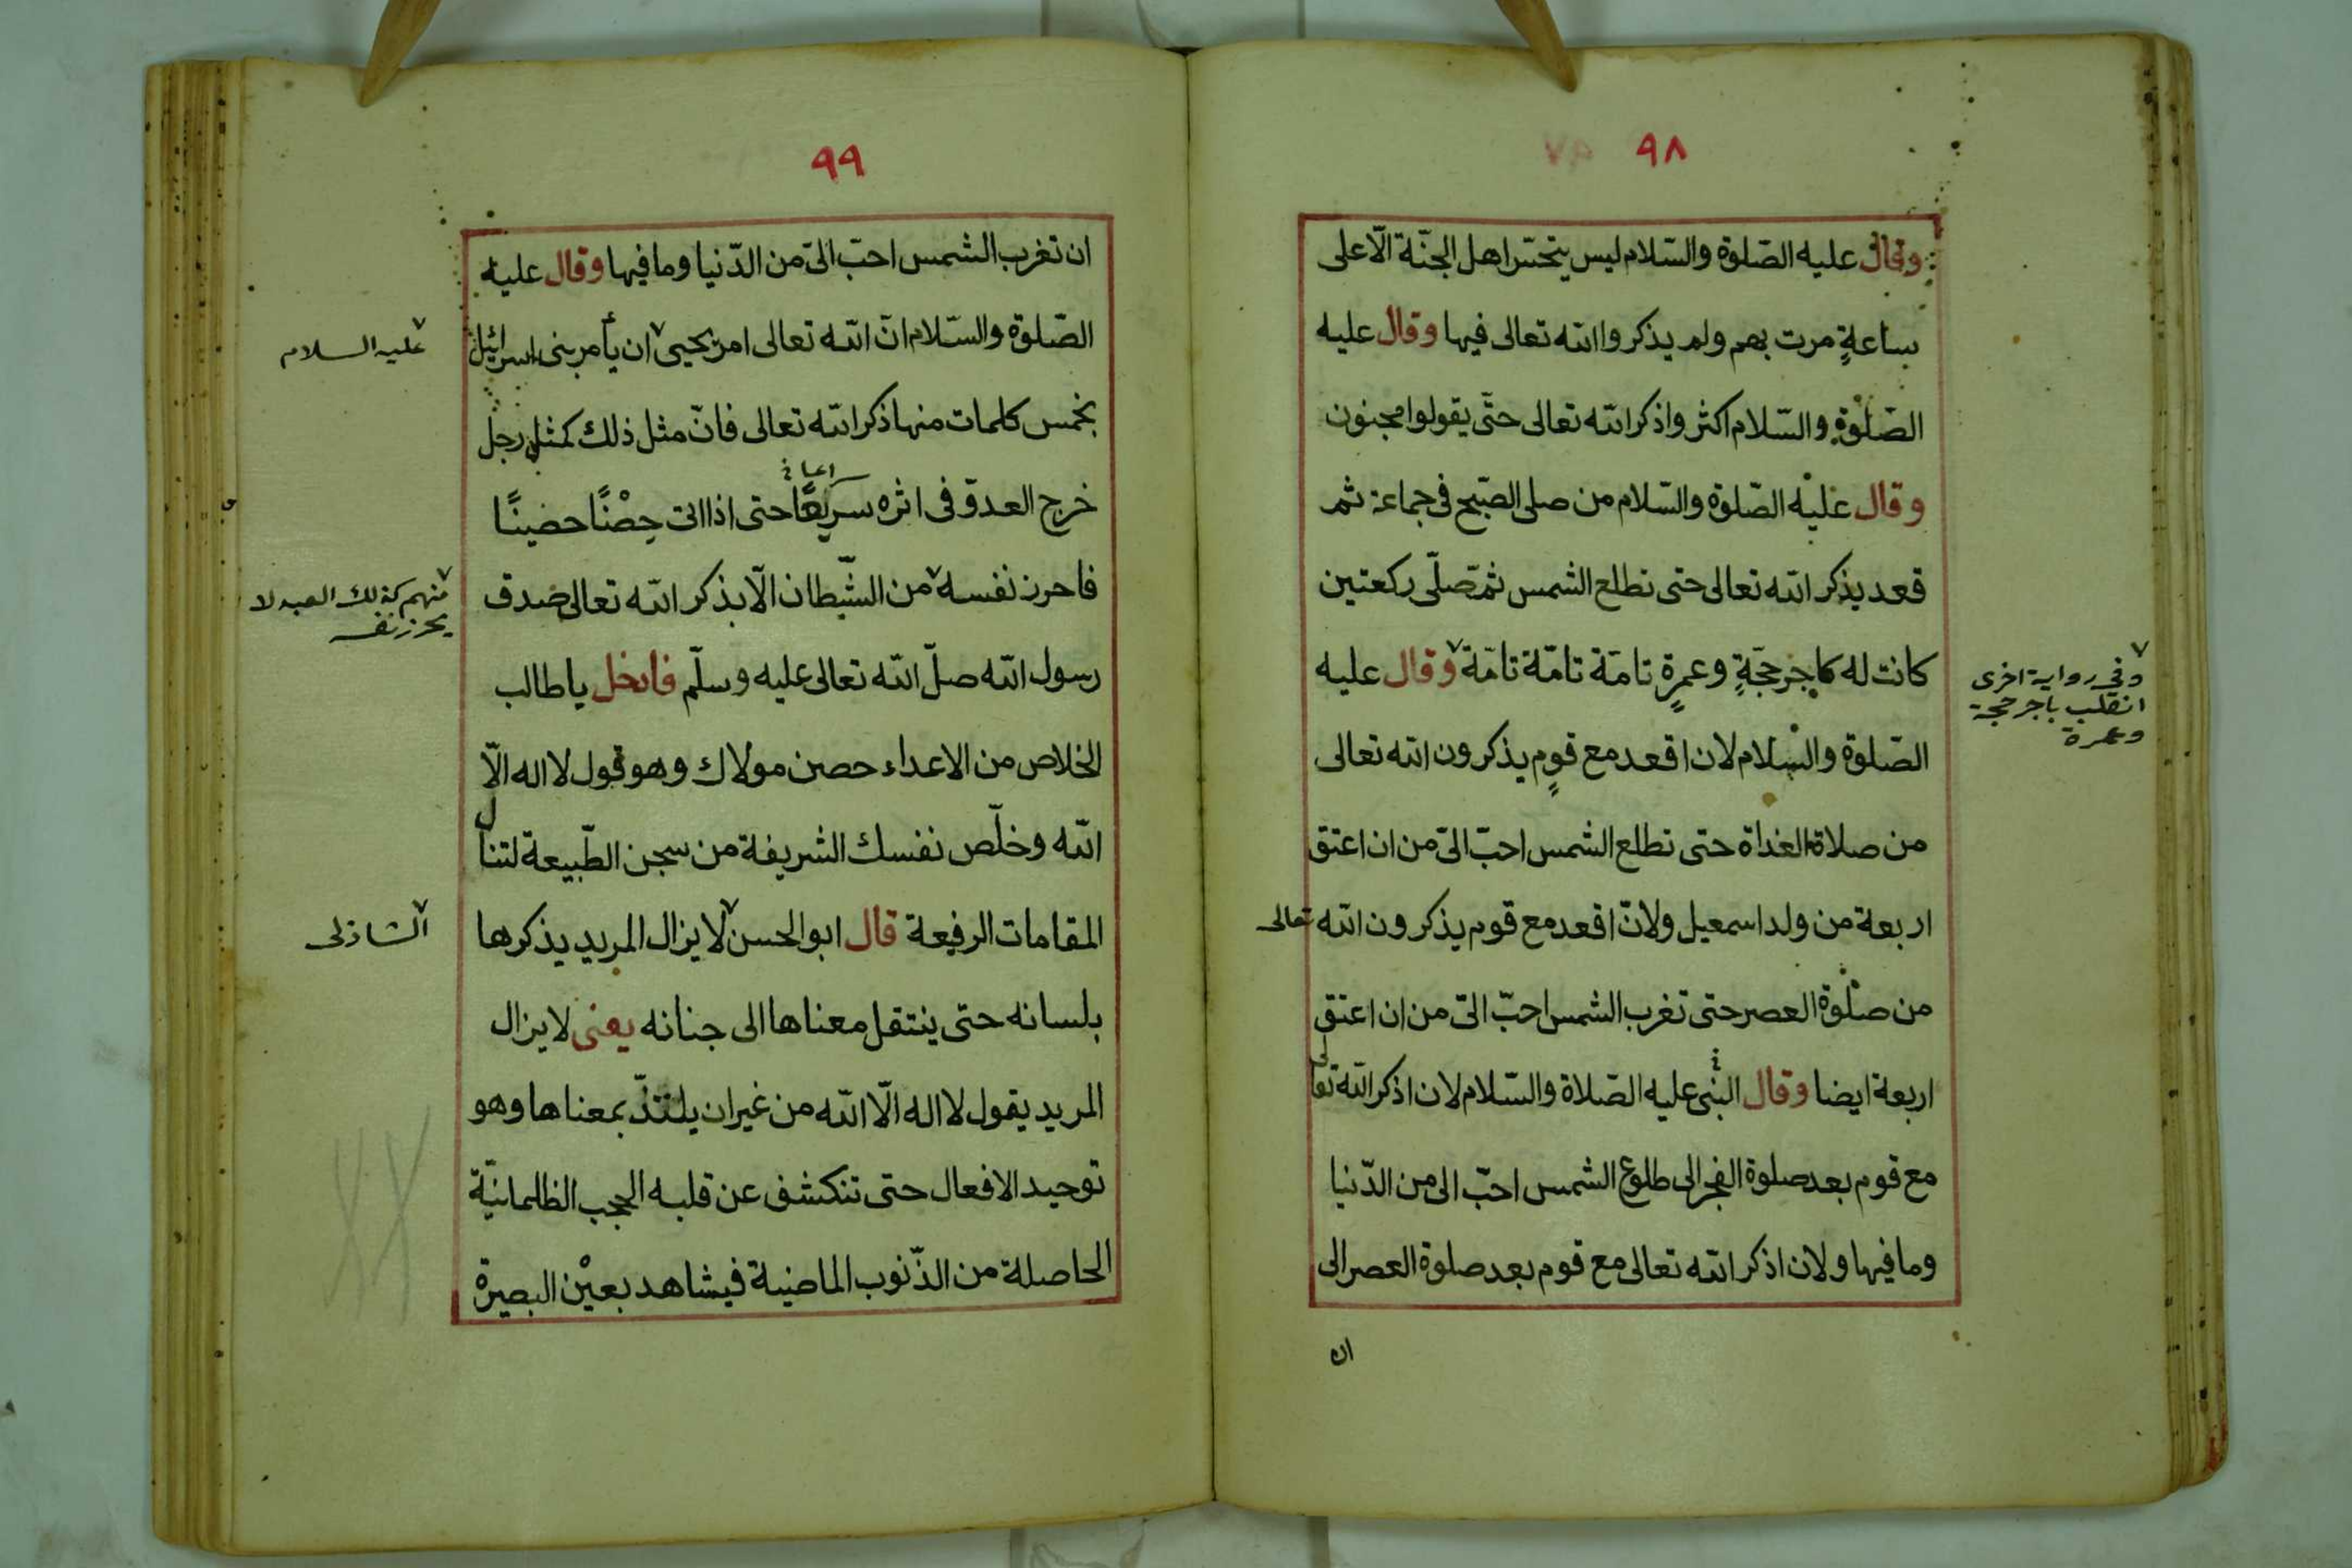 ٩٨
وقال عليه الصّلوة والسّلام ليس يتحسّر اهل الجنّة الّا على
ساعةٍ مرت بهم ولم يذكروا الله تعالى فيها وقال عليه
الصّلوة والسّلام اكثروا ذكر الله تعالى حتّى يقولوا مجنون
وقال عليه الصّلوة والسّلام من صلى الصّبح فى جماعة ثم
قعد يذكر الله تعالى حتى تطلع الشمس ثمّ صلّى ركعتين
كانت له كاجر حجّةٍ وعمرةٍ تامّة تامّة تامّة وقال عليه
وفى رواية اخرى
انقلب باجر حجة
وعمرة
الصّلوة والسّلام لان اقعد مع قومٍ يذكرون الله تعالى
من صلاة الغداة حتى تطلع الشمس احبّ الىّ من ان اعتق
اربعة من ولد اسمعيل ولانّ اقعد مع قوم يذكرون الله تعالى
من صلوة العصر حتى تغرب الشمس احبّ الىّ من ان اعتق
اربعة ايضا وقال النّبى عليه الصّلاة والسّلام لان اذكر الله تعالى
مع قوم بعد صلوة الفجر الى طلوع الشمس احبّ الى من الدّنيا
وما فيها ولان اذكر الله تعالى مع قوم بعد صلوة العصر الى
ان
٩٩
ان تغرب الشمس احبّ الىّ من الدّنيا وما فيها وقال عليه
الصّلوة والسّلام انّ الله تعالى امر يحيى ان يأمر بنى اسرائيل
عليه السلام
بخمس كلمات منها ذكر الله تعالى فانّ مثل ذلك كمثل رجل
خرج العدو فى اثره سريعًا حتى اذا اتى حِصْنًا حصينًا
فاحرز نفسه من الشّيطان الّا بذكر الله تعالى صدق
منهم كذلك العبد لا
يحرز نفسه
رسول الله صلّ الله تعالى عليه وسلّم فادخل يا طالب
الخلاص من الاعداء حصن مولاك وهو قول لا اله الّا
الله وخلّص نفسك الشريفة من سجن الطّبيعة لتنال
المقامات الرفيعة قال ابو الحسن لا يزال المريد يذكرها
الشاذلى
بلسانه حتى ينتقل معناها الى جنانه يعنى لا يزال
المريد يقول لا اله الّا الله من غير ان يلتذّ بمعناها وهو
توحيد الافعال حتى تنكشف عن قلبه الحجب الظلمانيّة
الحاصلة من الذّنوب الماضية فيشاهد بعيْن البصيرة